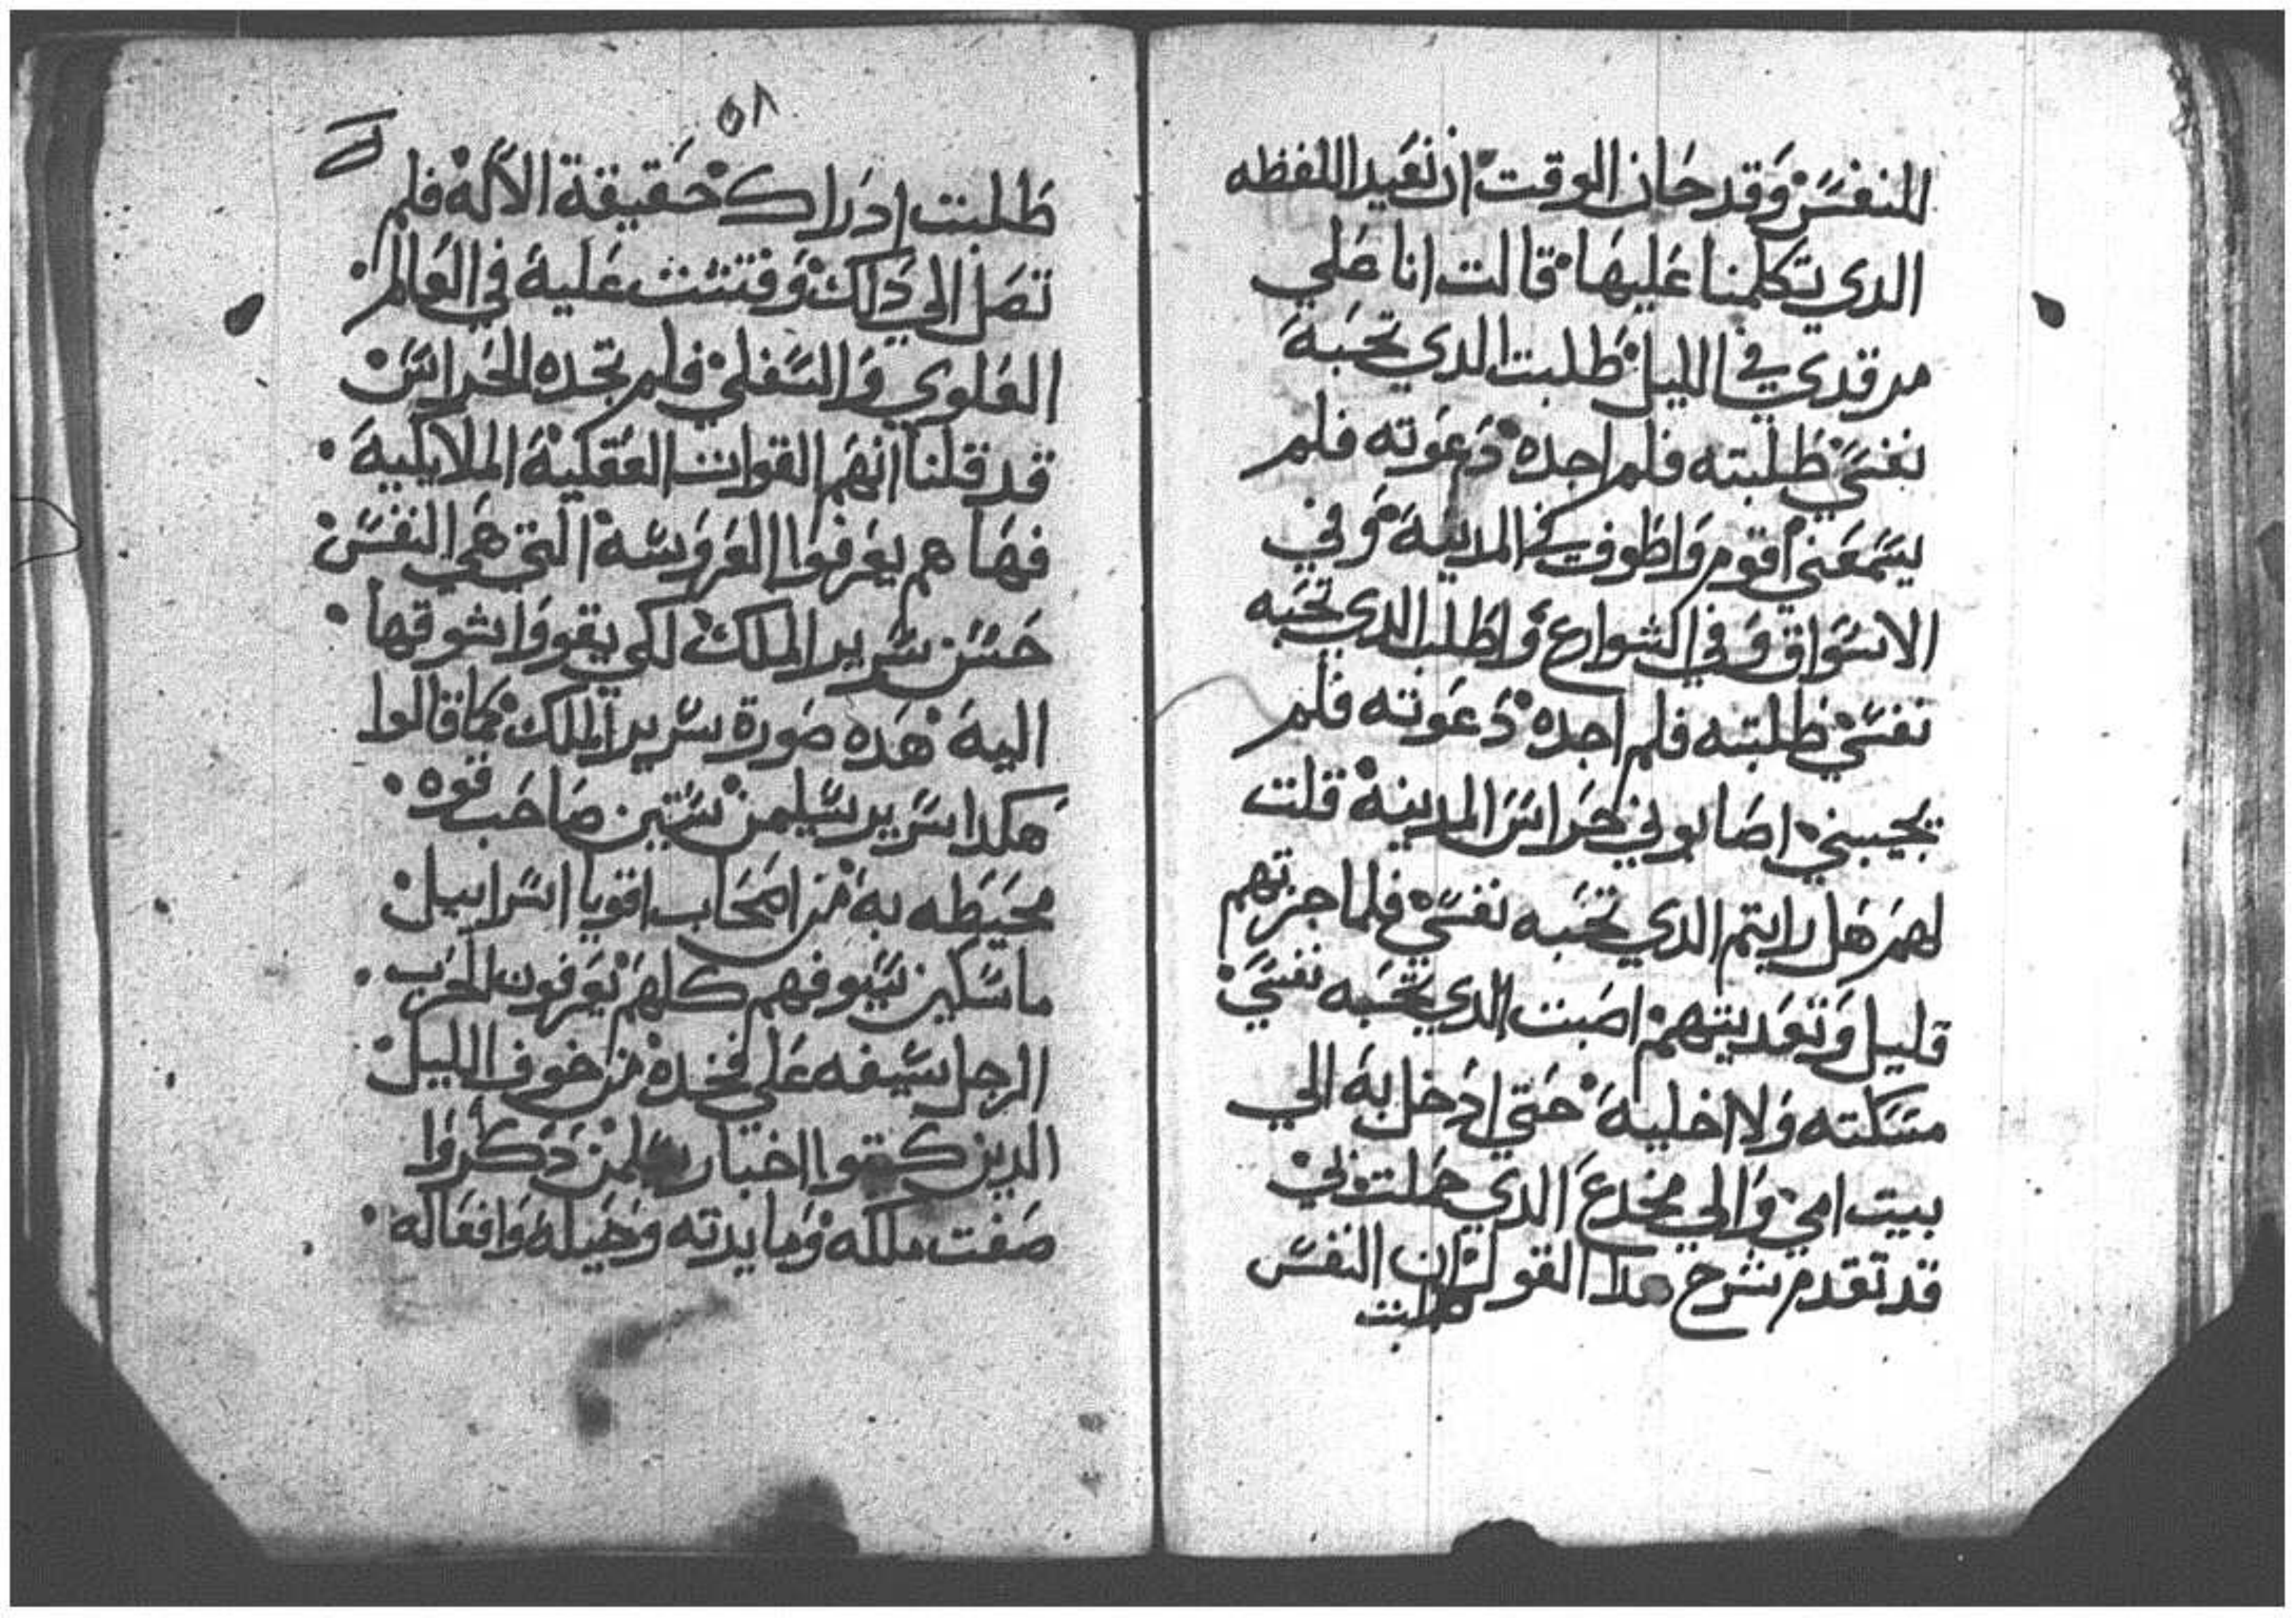 للنفس وقد حان الوقت ان نعيد اللفظه
الدي تكلمنا عليها قالت انا علي
مرقدي في الليل طلبت الدي تحبه
نفسي طلبته فلم اجده دعوته فلم
يسمعني اقوم واطوف في المدينة وفي
الاسواق وفي الشوارع واطلب الدي تحبه
نفسي طلبته فلم اجده دعوته فلم
يجيبني اصابوني حراس المدينة قلت
لهم هل رايتم الدي تحبه نفسي فلما جزتهم
قليل وتعديتهم اصبت الدي تحبه نفسي
مسكته ولا اخلية حتي ادخل به الي
بيت امي والي مخدع الدي حملت بي
قد تقدم شرح هدا القول ان النفس
طلبت
٥٨
طلبت ادراك حقيقة الاله فلم
تصل الي دلك وفتشت علية في العالم
العلوي والسفلي فلم تجده الحراس
قد قلنا انهم القوات العقلية الملايكية
فها هم يعرفوا العروسة التي هي النفس
حسن سرير الملك لكي يقووا شوقها
الية هده صورة سرير الملك كما قالوا
هكدا سرير سليمن ستين صاحب قوه
محيطه به من اصحاب اقويا اسراييل
ماسكين سيوفهم كلهم يعرفون الحرب
الرجل سيفه علي فخده من خوف الليل
الدين كتبوا اخبار سليمن دكروا
صفت ملكه ومايدته وخيله وافعاله